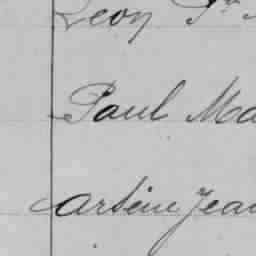 Leon
Paul Ma
Arsène Jean